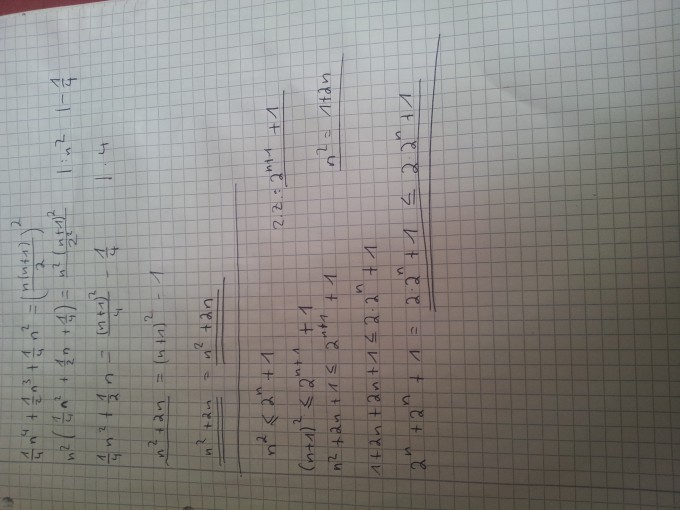 1/4 n⁴ + 1/2 n³ + 1/4 n² = (n(n+1)/2)²
n² (1/4 n² + 1/2 n + 1/4) = n² (n+1)²/2² | : n² | - 1/4
1/4 n² + 1/2 n = (n+1)²/4 - 1/4 | : 4
n² + 2n = (n+1)² - 1
n² + 2n = n² + 2n
n² ≤ 2ⁿ + 1 zz: 2ⁿ⁺¹ + 1
(n+1)² ≤ 2ⁿ⁺¹ + 1
n² + 2n + 1 ≤ 2ⁿ⁺¹ + 1 n² = 1+2n
1 + 2n + 2n + 1 ≤ 2·2ⁿ + 1
2ⁿ + 2ⁿ + 1 = 2·2ⁿ + 1 ≤ 2·2ⁿ + 1